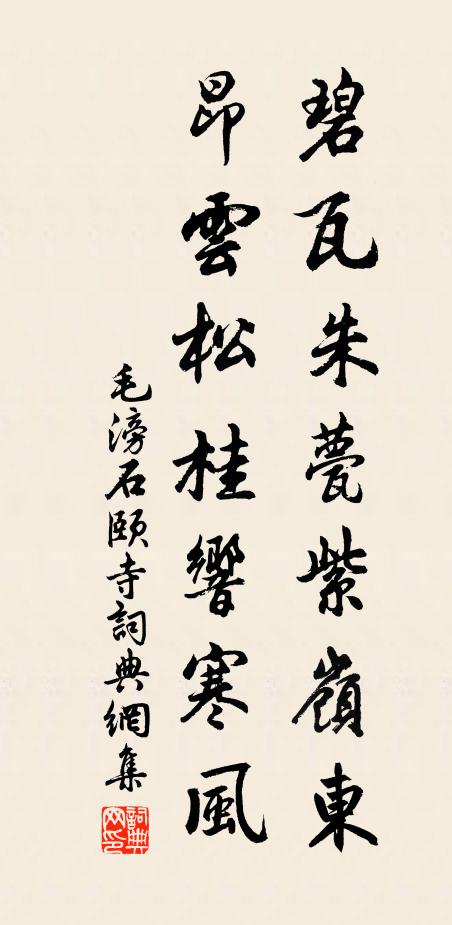 碧瓦朱甍紫嶺東
昂雲松桂響寒風
毛滂石頤寺詞典網集
詞典網印